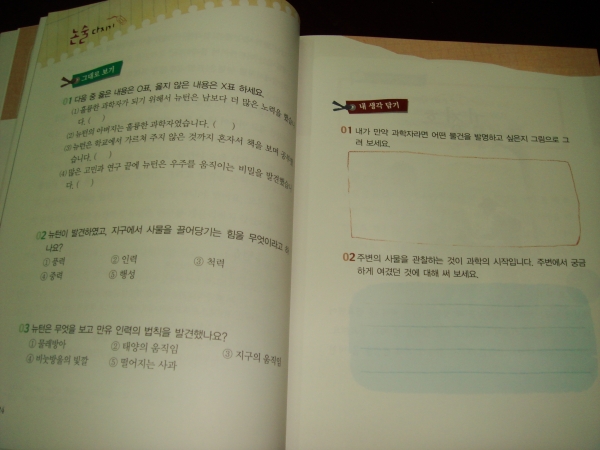 논술 다지기
그대로 보기
01 다음 중 옳은 내용은 O표, 옳지 않은 내용은 X표 하세요.
(1) 훌륭한 과학자가 되기 위해서 뉴턴은 남보다 더 많은 노력을 했습니
다. (    )
(2) 뉴턴의 아버지는 훌륭한 과학자였습니다. (    )
(3) 뉴턴은 학교에서 가르쳐 주지 않은 것까지 혼자서 책을 보며 공부
습니다. (    )
(4) 많은 고민과 연구 끝에 뉴턴은 우주를 움직이는 비밀을 발견했습니
다. (    )
02 뉴턴이 발견하였고, 지구에서 사물을 끌어당기는 힘을 무엇이라고
나요?
① 풍력 ② 인력 ③ 척력
④ 중력 ⑤ 행성
03 뉴턴은 무엇을 보고 만유 인력의 법칙을 발견했나요?
① 물레방아 ② 태양의 움직임 ③ 지구의 움직임
④ 비눗방울의 빛깔 ⑤ 떨어지는 사과
내 생각 담기
01 내가 만약 과학자라면 어떤 물건을 발명하고 싶은지 그림으로 그
려 보세요.
02 주변의 사물을 관찰하는 것이 과학의 시작입니다. 주변에서 궁금
하게 여겼던 것에 대해 써 보세요.